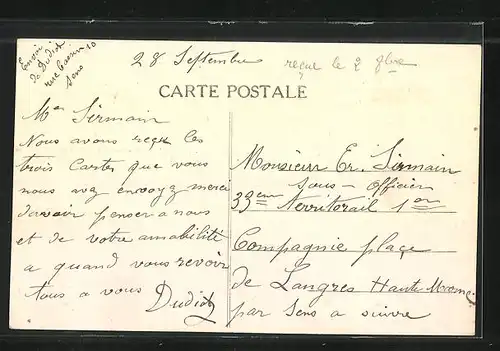 Envoi
de Dudiot
rue Carnot 10
Sens
28 Septembre
reçue le 2 8bre
CARTE POSTALE
Mr Sirmain
Nous avons reçu les
trois Cartes que vous
nous avez envoyez merci
d'avoir penser a nous
et de votre amabilité
a quand vous revoir
tous a vous
Dudiot
Monsieur Er. Sirmain
Sous-Officier
33em Territorail 1er
Compagnie plaçe
de Langres Haute Marne
par Sens a suivre